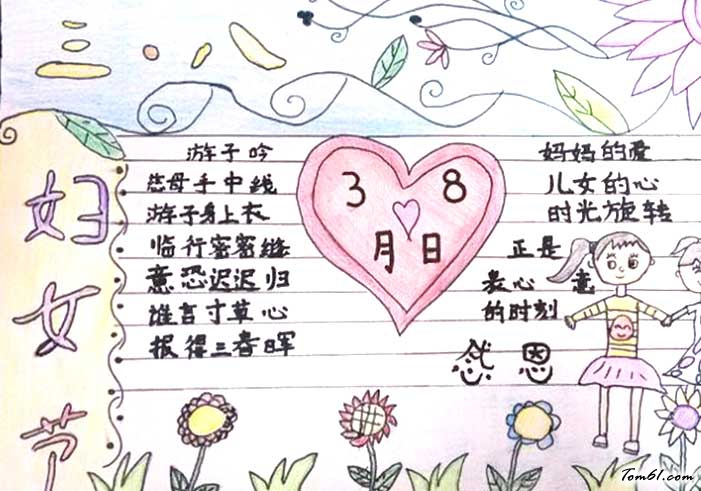 三·八
妇女节
游子吟
慈母手中线
游子身上衣
临行密密缝
意恐迟迟归
谁言寸草心
报得三春晖
3 8
月 日
妈妈的爱
儿女的心
时光旋转
正是
表心 意
的时刻
感恩
Tom61.com